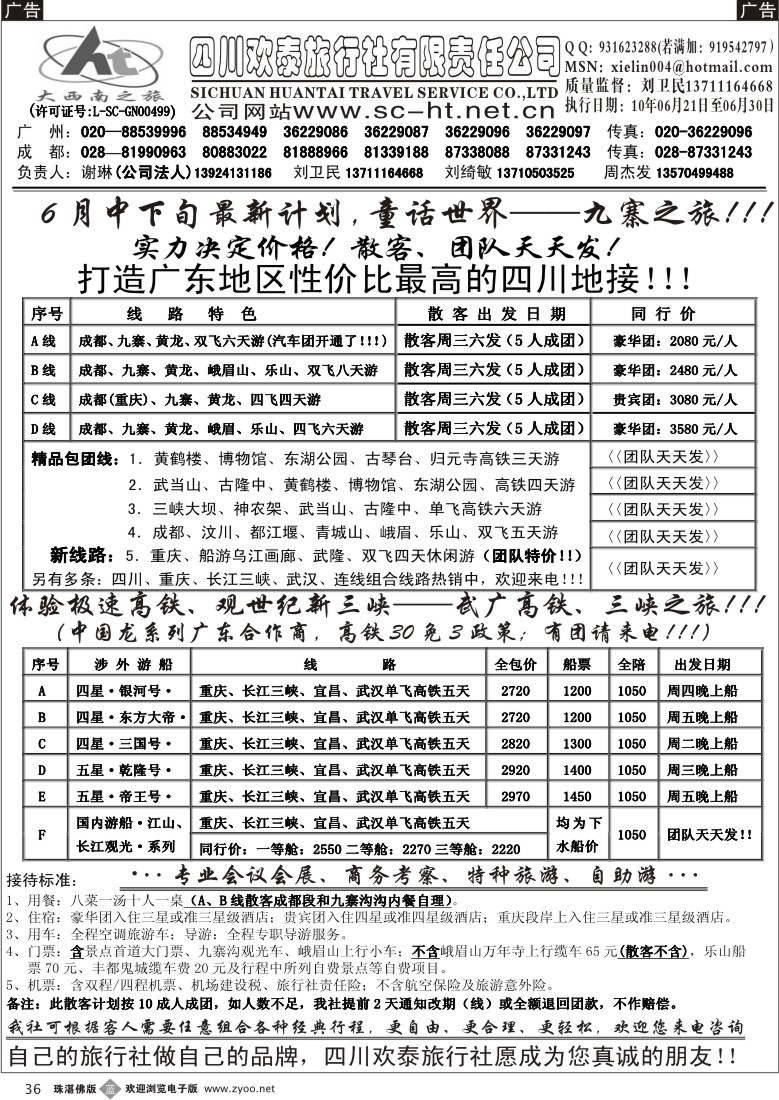 广告 广告
四川欢泰旅行社有限责任公司
SICHUAN HUANTAI TRAVEL SERVICE CO.,LTD
公司网站www.sc-ht.net.cn
ht
大西南之旅
(许可证号:L-SC-GN00499)
QQ: 931623288(若满加: 919542797)
MSN: xielin004@hotmail.com
质量监督: 刘卫民13711164668
执行日期: 10年06月21日至06月30日
广 州: 020—88539996 88534949 36229086 36229087 36229096 36229097 传真: 020-36229096
成 都: 028—81990963 80883022 81888966 81339188 87338088 87331243 传真: 028-87331243
负责人: 谢琳(公司法人)13924131186 刘卫民 13711164668 刘绮敏 13710503525 周杰发 13570499488
6月中下旬最新计划,童话世界——九寨之旅!!!
实力决定价格!散客、团队天天发!
打造广东地区性价比最高的四川地接!!!
序号 线 路 特 色 散 客 出 发 日 期 同 行 价
A线 成都、九寨、黄龙、双飞六天游(汽车团开通了!!!) 散客周三六发(5人成团) 豪华团: 2080元/人
B线 成都、九寨、黄龙、峨眉山、乐山、双飞八天游 散客周三六发(5人成团) 豪华团: 2480元/人
C线 成都(重庆)、九寨、黄龙、四飞四天游 散客周三六发(5人成团) 贵宾团: 3080元/人
D线 成都、九寨、黄龙、峨眉、乐山、四飞六天游 散客周三六发(5人成团) 豪华团: 3580元/人
精品包团线: 1. 黄鹤楼、博物馆、东湖公园、古琴台、归元寺高铁三天游 〈〈团队天天发〉〉
2. 武当山、古隆中、黄鹤楼、博物馆、东湖公园、高铁四天游 〈〈团队天天发〉〉
3. 三峡大坝、神农架、武当山、古隆中、单飞高铁六天游 〈〈团队天天发〉〉
4. 成都、汶川、都江堰、青城山、峨眉、乐山、双飞五天游 〈〈团队天天发〉〉
新线路: 5. 重庆、船游乌江画廊、武隆、双飞四天休闲游(团队特价!!) 〈〈团队天天发〉〉
另有多条: 四川、重庆、长江三峡、武汉、连线组合线路热销中,欢迎来电!!!
体验极速高铁、观世纪新三峡——武广高铁、三峡之旅!!!
(中国龙系列广东合作商,高铁30免3政策;有团请来电!!!)
序号 涉外游船 线 路 全包价 船票 全陪 出发日期
A 四星·银河号· 重庆、长江三峡、宜昌、武汉单飞高铁五天 2720 1200 1050 周四晚上船
B 四星·东方大帝· 重庆、长江三峡、宜昌、武汉单飞高铁五天 2720 1200 1050 周五晚上船
C 四星·三国号· 重庆、长江三峡、宜昌、武汉单飞高铁五天 2820 1300 1050 周二晚上船
D 五星·乾隆号· 重庆、长江三峡、宜昌、武汉单飞高铁五天 2920 1400 1050 周三晚上船
E 五星·帝王号· 重庆、长江三峡、宜昌、武汉单飞高铁五天 2970 1450 1050 周五晚上船
F 国内游船·江山、长江观光·系列 重庆、长江三峡、宜昌、武汉单飞高铁五天 均为下水船价 1050 团队天天发!!
同行价: 一等舱: 2550 二等舱: 2270 三等舱: 2220
接待标准: ···专业会议会展、商务考察、特种旅游、自助游···
1、用餐: 八菜一汤十人一桌(A、B线散客成都段和九寨沟沟内餐自理)。
2、住宿: 豪华团入住三星或准三星级酒店; 贵宾团入住四星或准四星级酒店; 重庆段岸上入住三星或准三星级酒店。
3、用车: 全程空调旅游车; 导游: 全程专职导游服务。
4、门票: 含景点首道大门票、九寨沟观光车、峨眉山上行小车; 不含峨眉山万年寺上行缆车65元(散客不含),乐山船
票70元、丰都鬼城缆车费20元及行程中所列自费景点等自费项目。
5、机票: 含双程/四程机票、机场建设税、旅行社责任险; 不含航空保险及旅游意外险。
备注: 此散客计划按10成人成团,如人数不足,我社提前2天通知改期(线)或全额退回团款,不作赔偿。
我社可根据客人需要任意组合各种经典行程,更自由、更合理、更轻松,欢迎您来电咨询
自己的旅行社做自己的品牌,四川欢泰旅行社愿成为您真诚的朋友!!
36 珠湛佛版 蓝 欢迎浏览电子版 www.zyoo.net